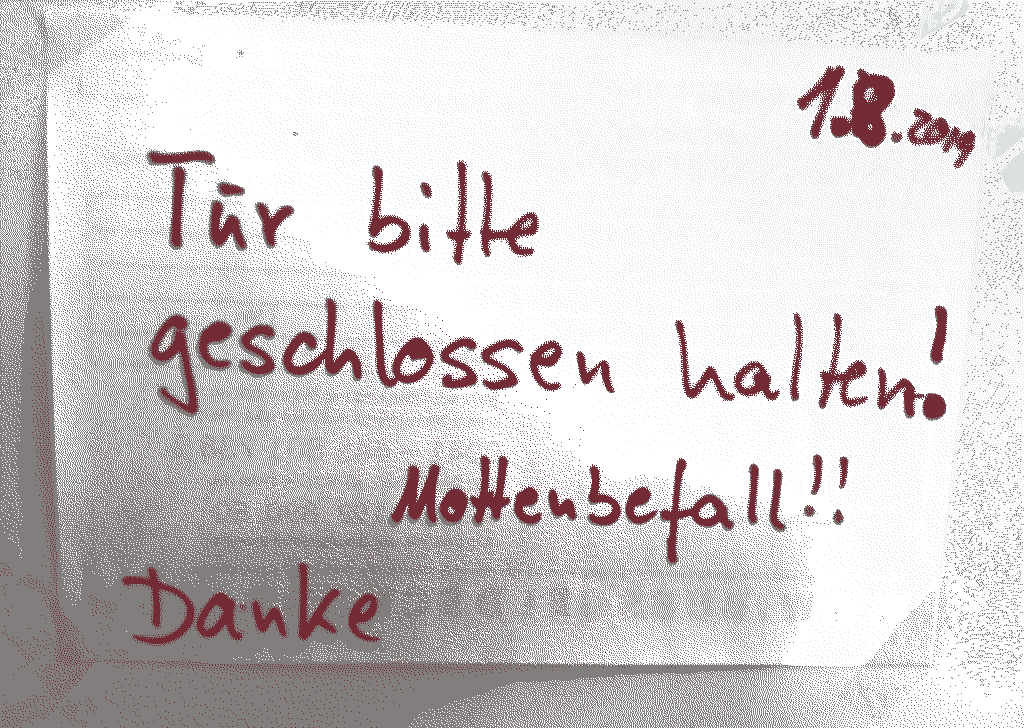 1.8.2019
Tür bitte
geschlossen halten!
Mottenbefall!!
Danke